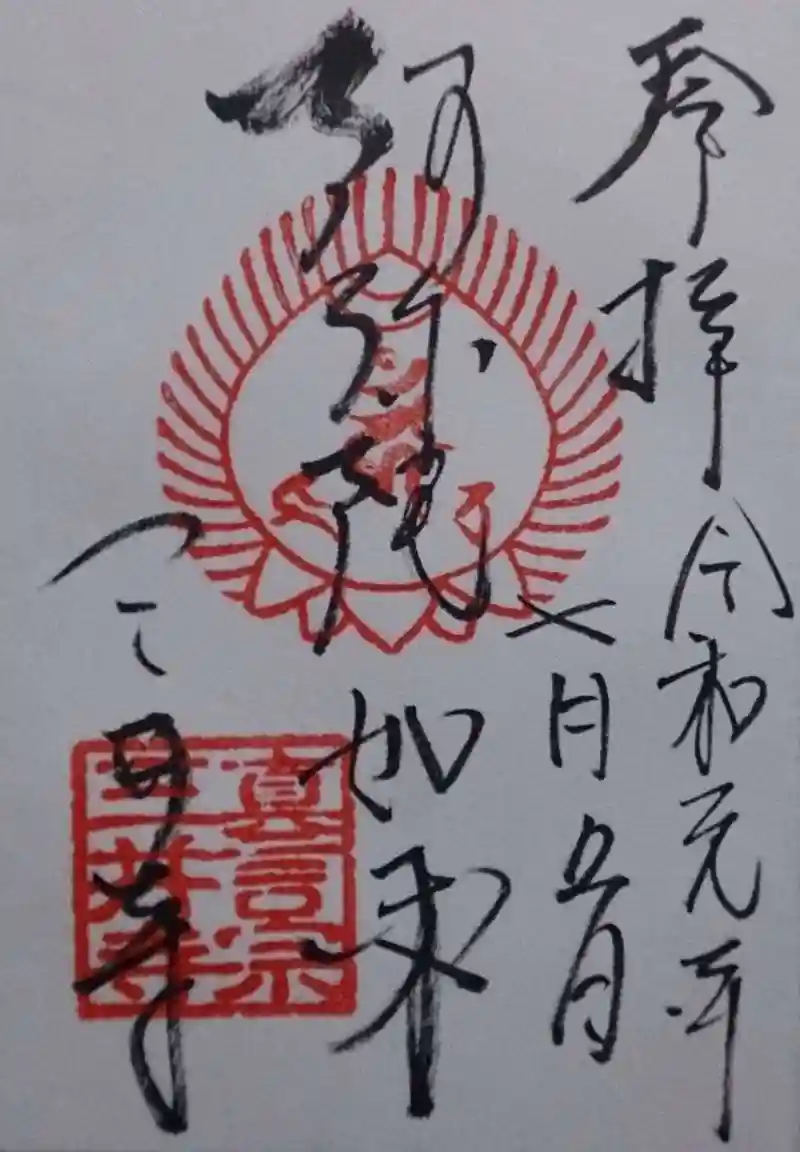 奉拝 令和元年
七月五日
阿弥陀如来
真言宗